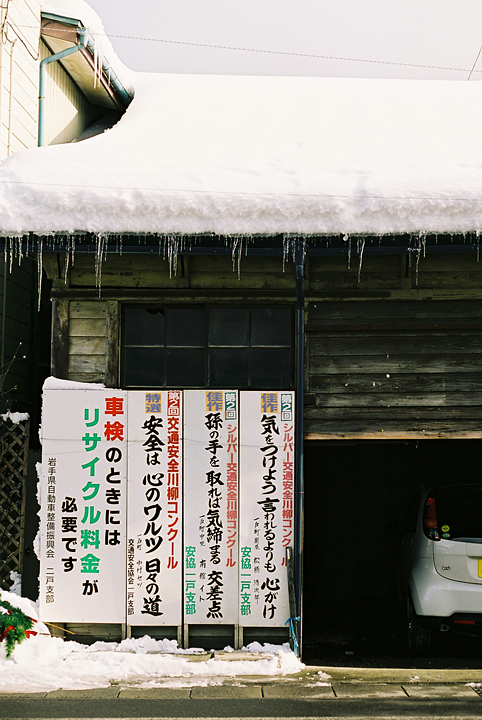 第2回シルバー交通安全川柳コンクール
佳作
気をつけよう 言われるよりも 心がけ
安協一戸支部
第2回シルバー交通安全川柳コンクール
佳作
孫の手を 取れば気締まる 交差点
安協一戸支部
第2回交通安全川柳コンクール
特選
安全は 心のワルツ 日々の道
交通安全協会一戸支部
車検のときには
リサイクル料金が
必要です
岩手県自動車整備振興会 二戸支部